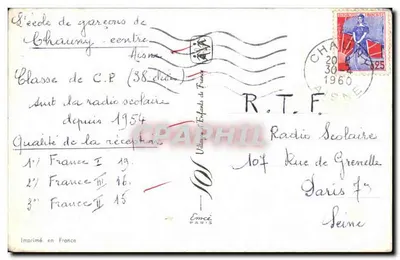 L'école de garçons de
Chauny - centre
Aisne
Classe de C.P. (38 élèves)
suit la radio scolaire
depuis 1954
Qualité de la réception
1°/ France I 19.
2°/ France III 16.
3°/ France II 15
Imprimé en France
SOS Villages d'Enfants de France
PARIS
CHAUNY
20
30-4
1960
AISNE
0,25
R.T.F.
Radio Scolaire
107 Rue de Grenelle
Paris 7e
Seine
CPAPHIL.COM